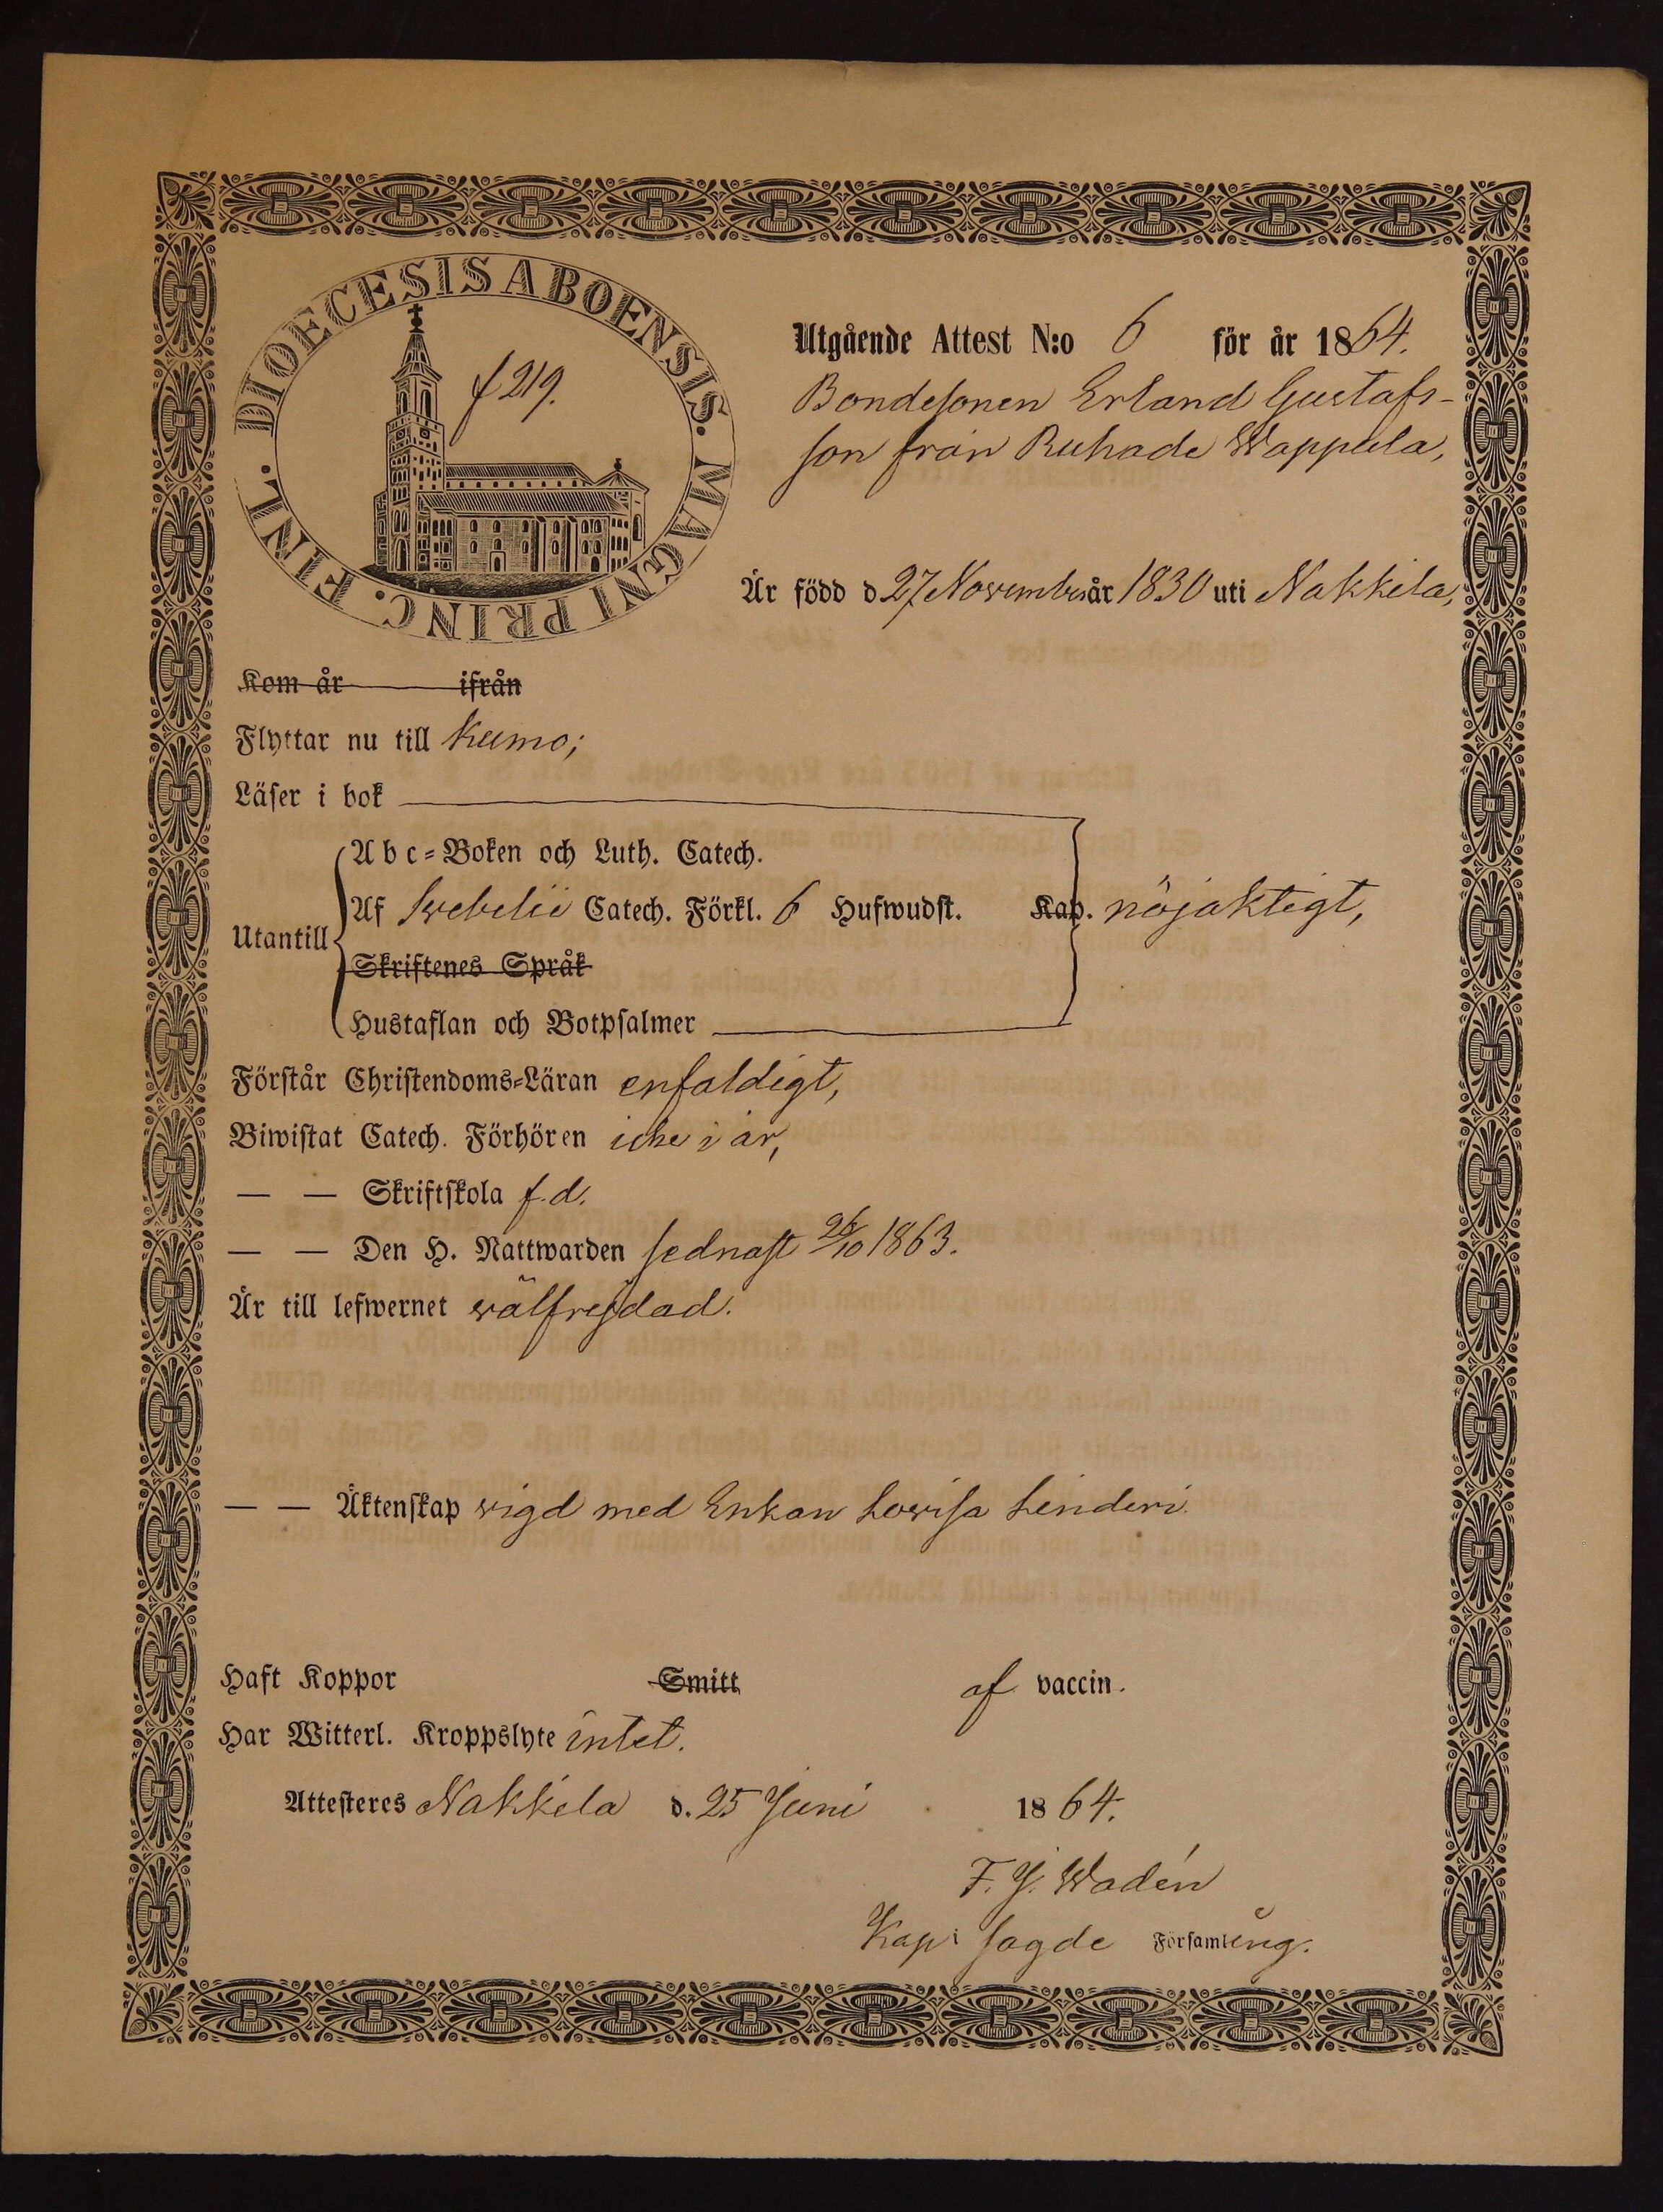 DIOECESIS ABOENSIS. MAGNI PRINC. FINL.
f 219.
Utgående Attest N:o 6 för år 1864.
Bondesonen Erland Gustafs-
son från Ruhade Wappula,
Är född d 27 November år 1830 uti Nakkila,
Kom år ifrån
Flyttar nu till Kumo;
Läser i bok
Utantill
Abc-Boken och Luth. Catech.
Af Swebelii Catech. Förkl. 6 Hufwudst. Kap. nöjaktigt,
Skriftenes Språk
Hustaflan och Botpsalmer
Förstår Christendoms-Läran enfaldigt,
Biwistat Catech. Förhören icke i år,
— — Skriftskola f.d.
— — Den H. Nattwarden sednast 26/10 1863.
Är till lefwernet wälfrejdad.
— — Äktenskap wigd med Enkan Lovisa Linderi.
Haft Koppor Smitt af vaccin.
Har Witterl. Kroppslyte intet.
Attesteres Nakkila d. 25 Juni 1864.
F. J. Wadén
Kap. i sagde Församling.